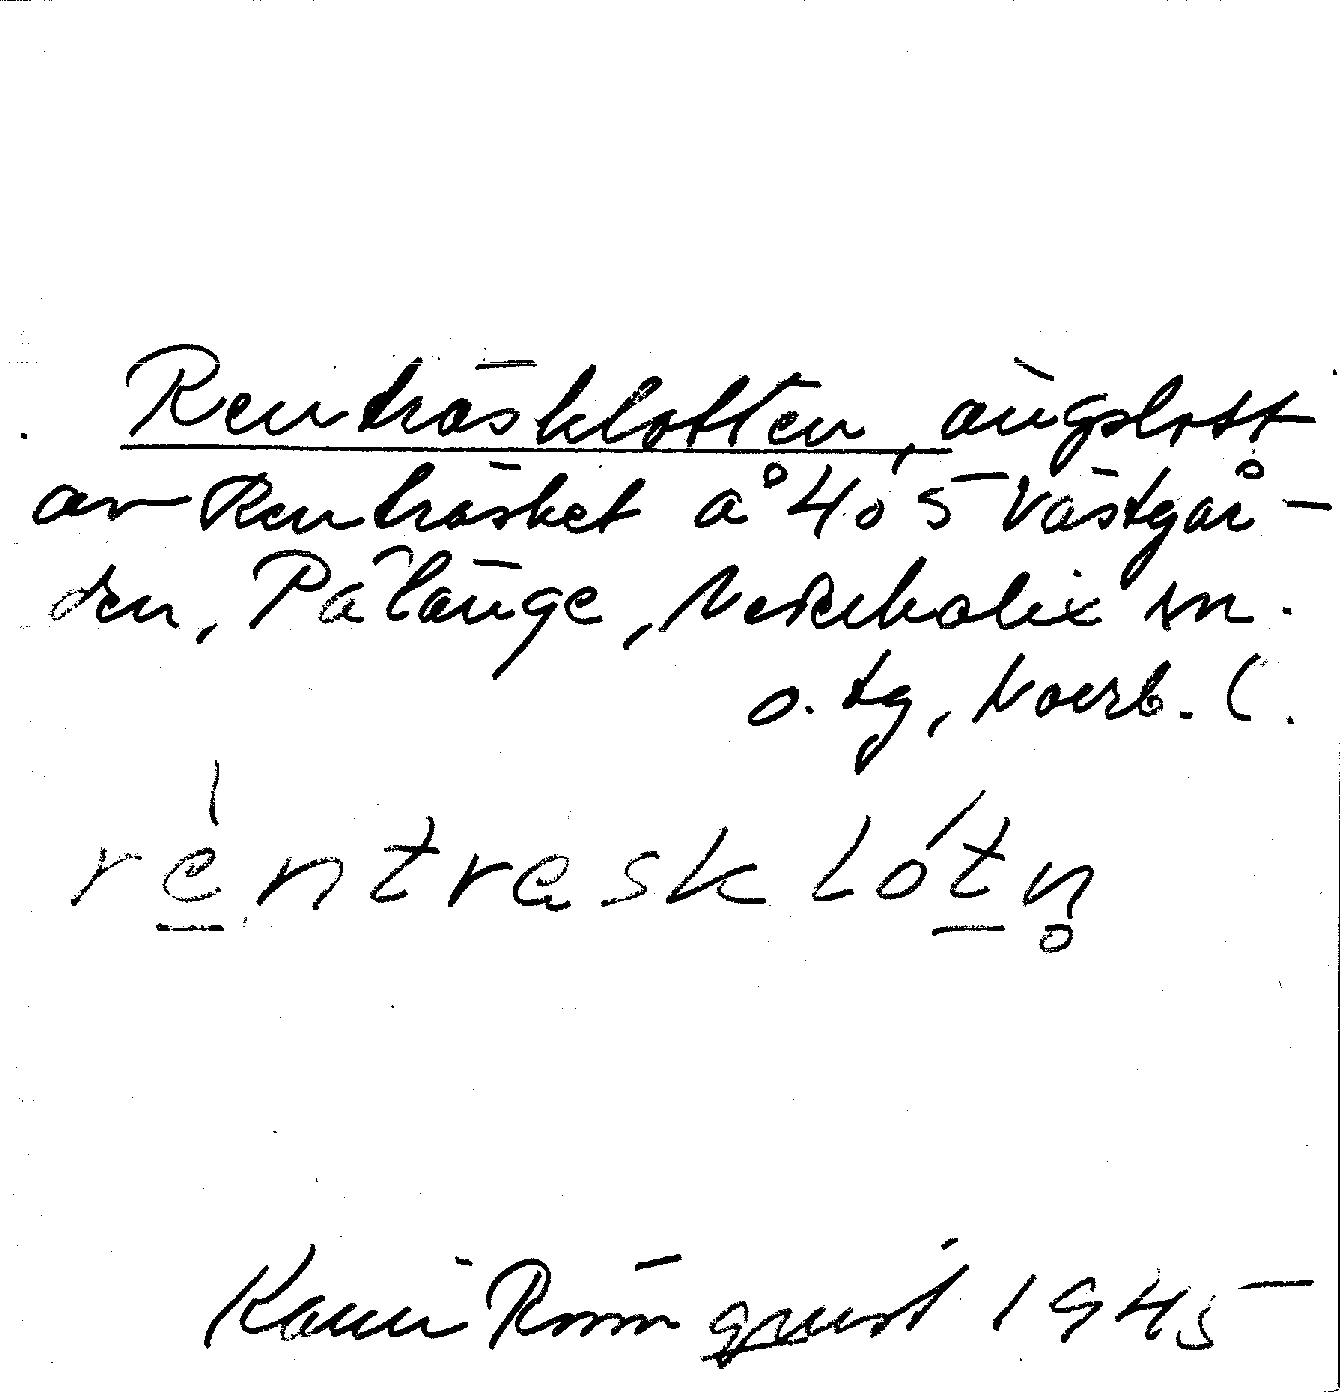 Renträsklotten, ängslott
av Renträsket å 4 o 5 Västgår-
den, Pålänge, Nederkalix sn.
o. tg, Norrb. l.
réntrasklótn̥
Karin Rönnqvist 1945